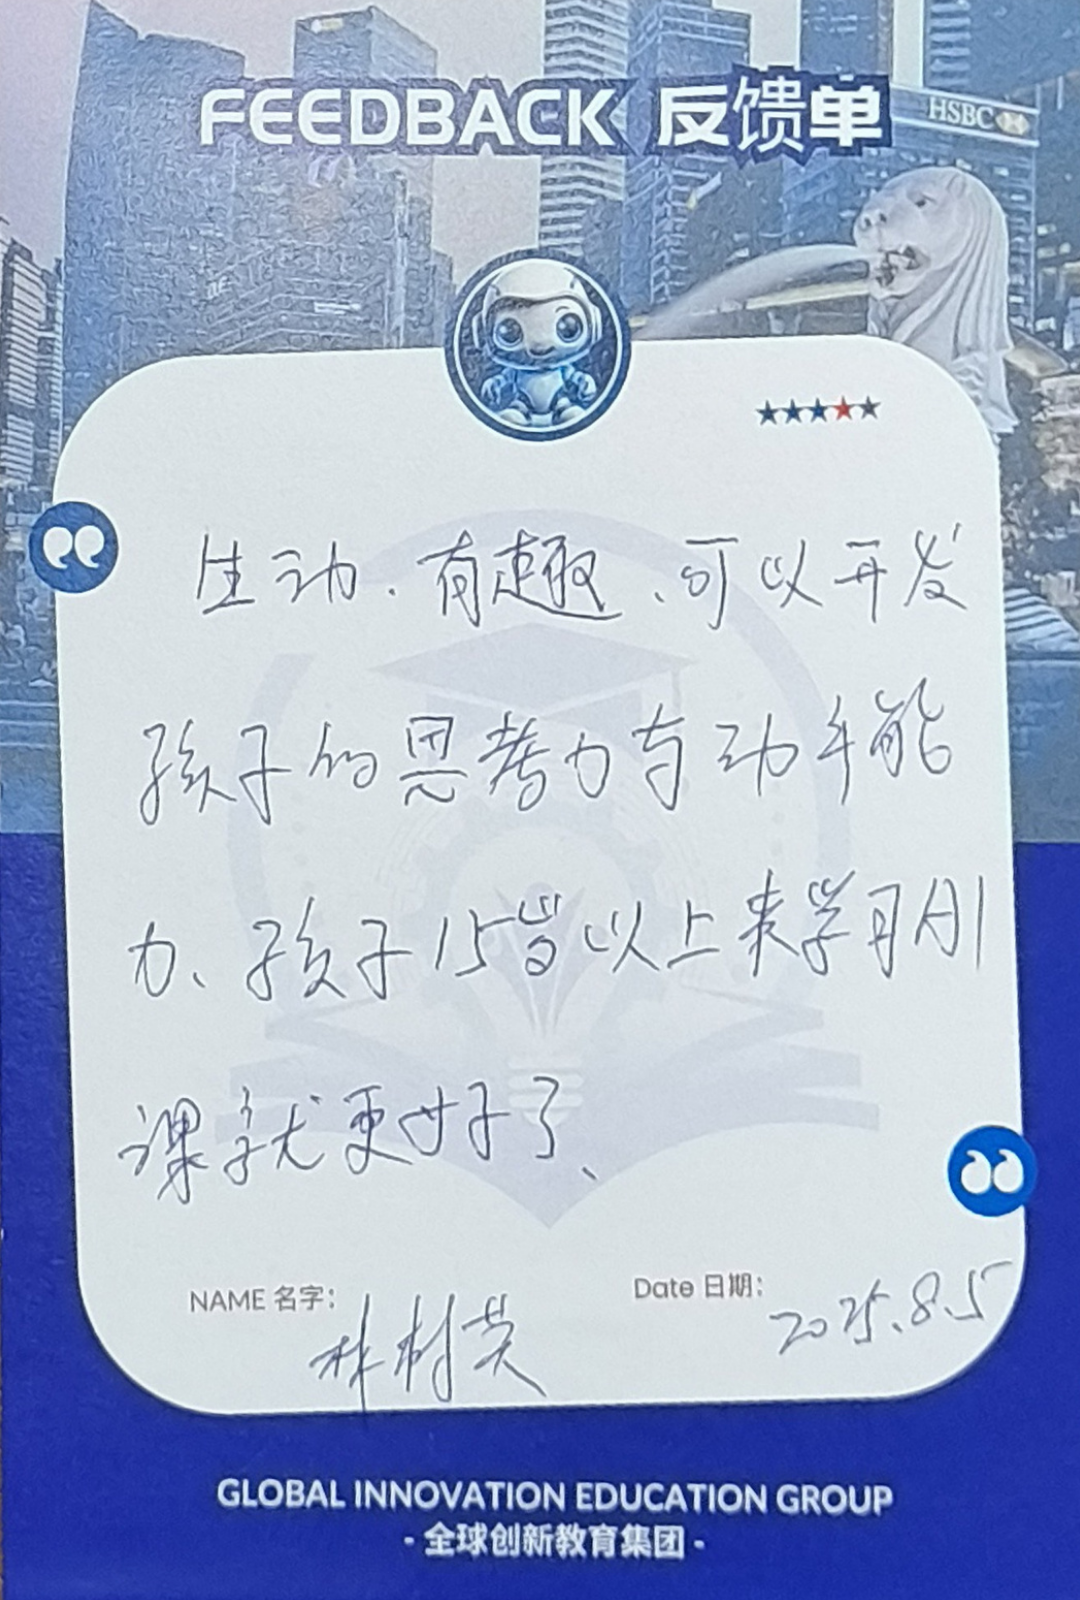 FEEDBACK 反馈单
HSBC
生动、有趣、可以开发
孩子的思考力与动手能
力、孩子15岁以上来学习此
课就更好了、
NAME 名字：
Date 日期：
林树英
2025.8.5
GLOBAL INNOVATION EDUCATION GROUP
- 全球创新教育集团 -